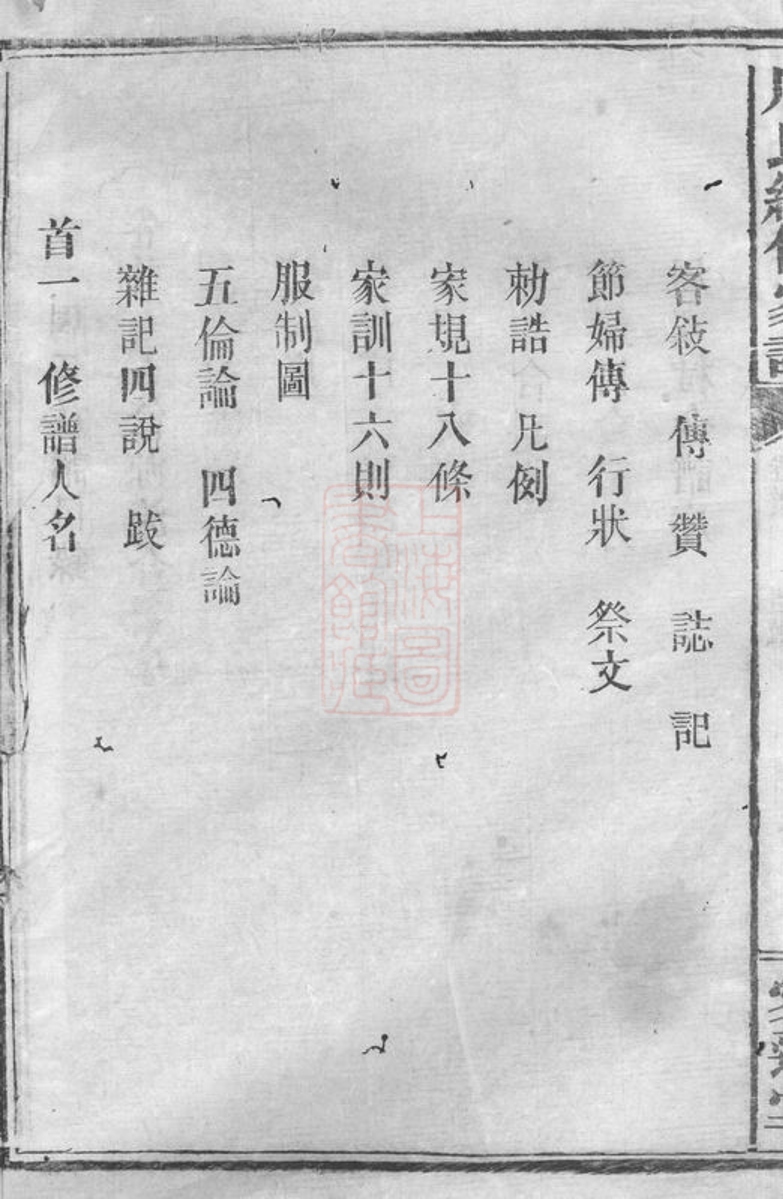 客敘 傳 贊 誌 記
節婦傳 行狀 祭文
勅誥 凡例
家規十八條
家訓十六則
服制圖
五倫論 四德論
雜記四說 跋
首一 修譜人名
上海圖書館藏